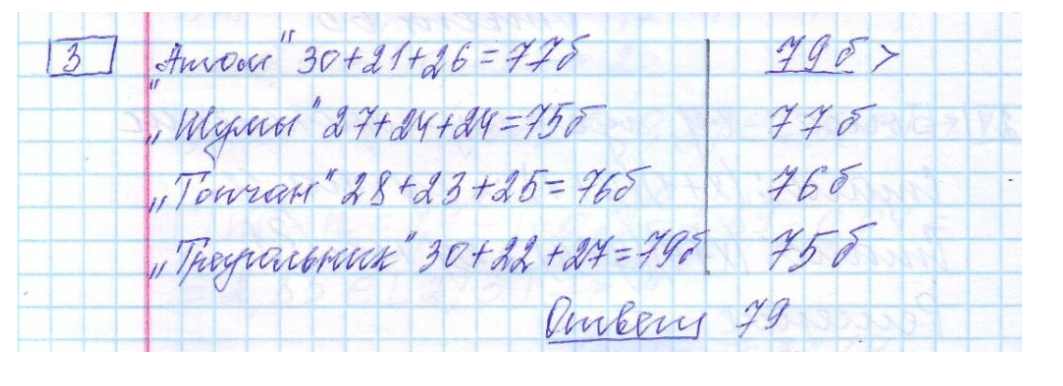 3 „Атом" 30+21+26=77б 79б >
„Шумы" 27+24+24=75б 77б
„Топчан" 28+23+25=76б 76б
„Треугольник" 30+22+27=79б 75б
Ответ 79